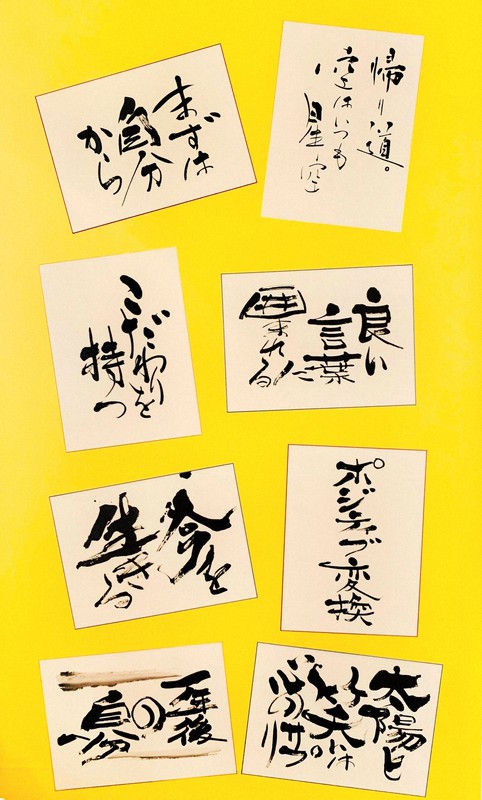 まずは
自分
から
帰り道。
空はいつも
星空
こだわりを
持つ
良い
言葉に
囲まれる
今を
生きる
ポジティブ変換
一年後
の
自分へ
太陽と
心の